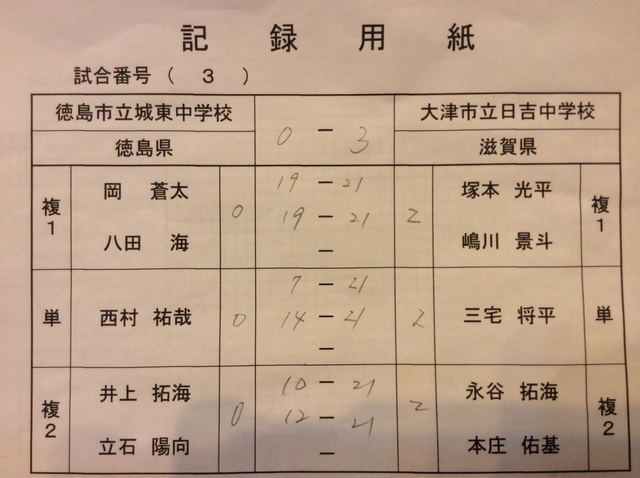 記録用紙
試合番号 ( 3 )
徳島市立城東中学校 0 － 3 大津市立日吉中学校
徳島県 滋賀県
複1 岡 蒼太 0 19 － 21 2 塚本 光平 複1
八田 海 19 － 21 嶋川 景斗
－
単 西村 祐哉 0 7 － 21 2 三宅 将平 単
14 － 21
－
複2 井上 拓海 0 10 － 21 2 永谷 拓海 複2
立石 陽向 12 － 21 本庄 佑基
－